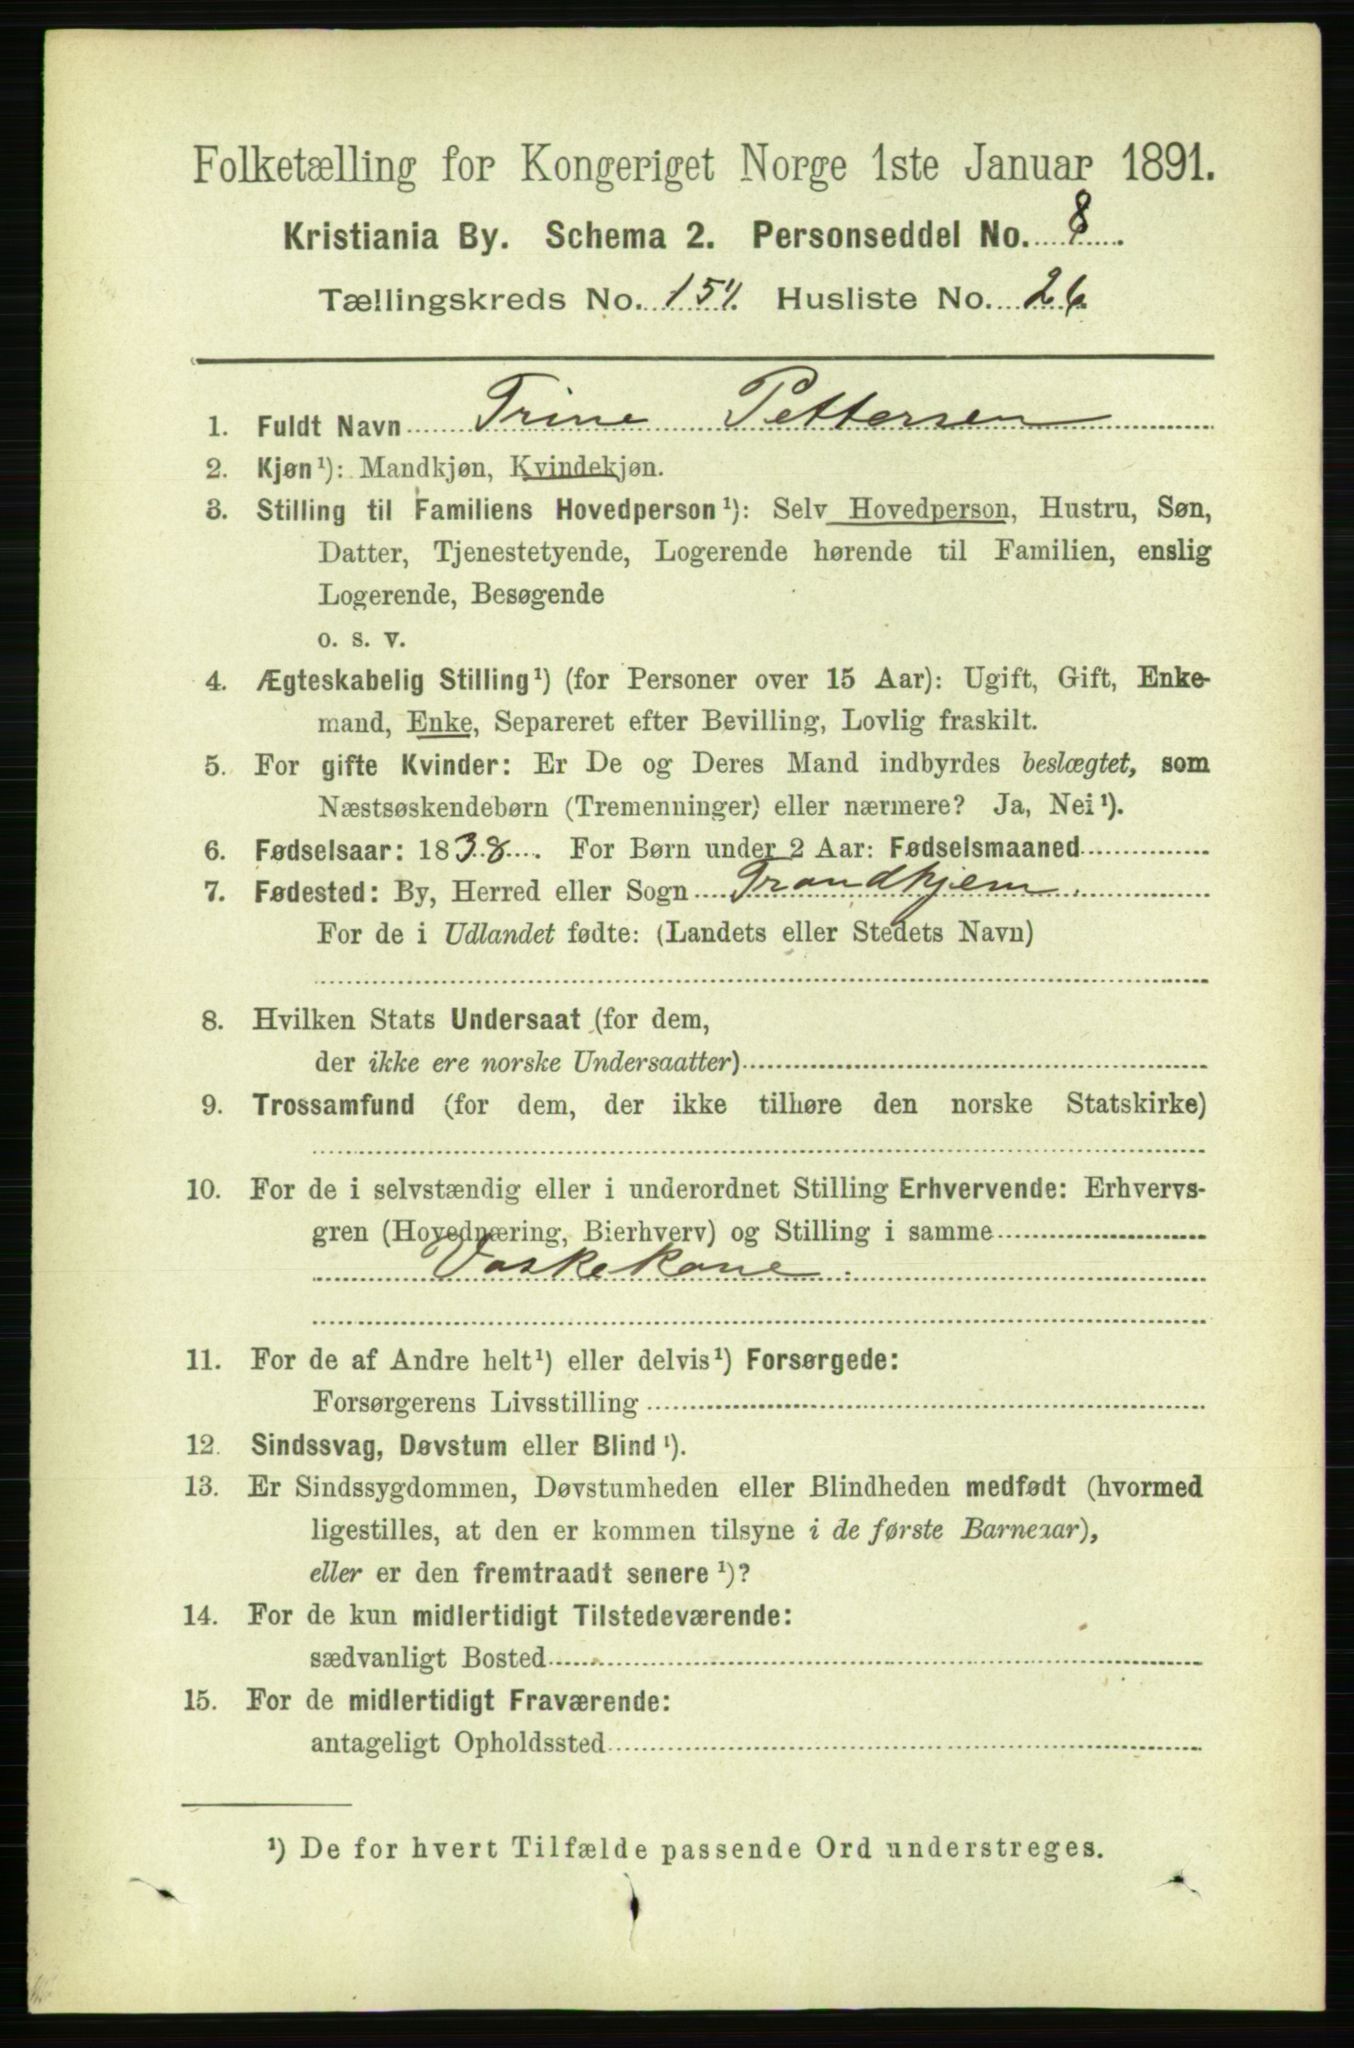 Folketælling for Kongeriget Norge 1ste Januar 1891.
Kristiania By. Schema 2. Personseddel No. 8
Tællingskreds No. 154. Husliste No. 26
1. Fuldt Navn Trine Pettersen
2. Kjøn¹): Mandkjøn, Kvindekjøn.
3. Stilling til Familiens Hovedperson¹): Selv Hovedperson, Hustru, Søn,
Datter, Tjenestetyende, Logerende hørende til Familien, enslig
Logerende, Besøgende
o. s. v.
4. Ægteskabelig Stilling¹) (for Personer over 15 Aar): Ugift, Gift, Enke-
mand, Enke, Separeret efter Bevilling, Lovlig fraskilt.
5. For gifte Kvinder: Er De og Deres Mand indbyrdes beslægtet, som
Næstsøskendebørn (Tremenninger) eller nærmere? Ja, Nei¹).
6. Fødselsaar: 1838. For Børn under 2 Aar: Fødselsmaaned
7. Fødested: By, Herred eller Sogn Trondhjem.
For de i Udlandet fødte: (Landets eller Stedets Navn)
8. Hvilken Stats Undersaat (for dem,
der ikke ere norske Undersaatter)
9. Trossamfund (for dem, der ikke tilhøre den norske Statskirke)
10. For de i selvstændig eller i underordnet Stilling Erhvervende: Erhvervs-
gren (Hovednæring, Bierhverv) og Stilling i samme
Vaskekone.
11. For de af Andre helt¹) eller delvis¹) Forsørgede:
Forsørgerens Livsstilling
12. Sindssvag, Døvstum eller Blind¹).
13. Er Sindssygdommen, Døvstumheden eller Blindheden medfødt (hvormed
ligestilles, at den er kommen tilsyne i de første Barneaar),
eller er den fremtraadt senere¹)?
14. For de kun midlertidigt Tilstedeværende:
sædvanligt Bosted
15. For de midlertidigt Fraværende:
antageligt Opholdssted
¹) De for hvert Tilfælde passende Ord understreges.